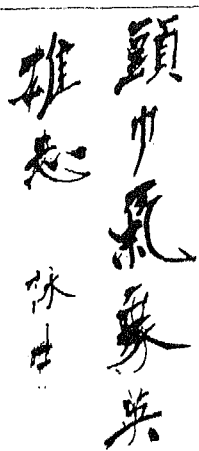 頭巾氣象英
雄志